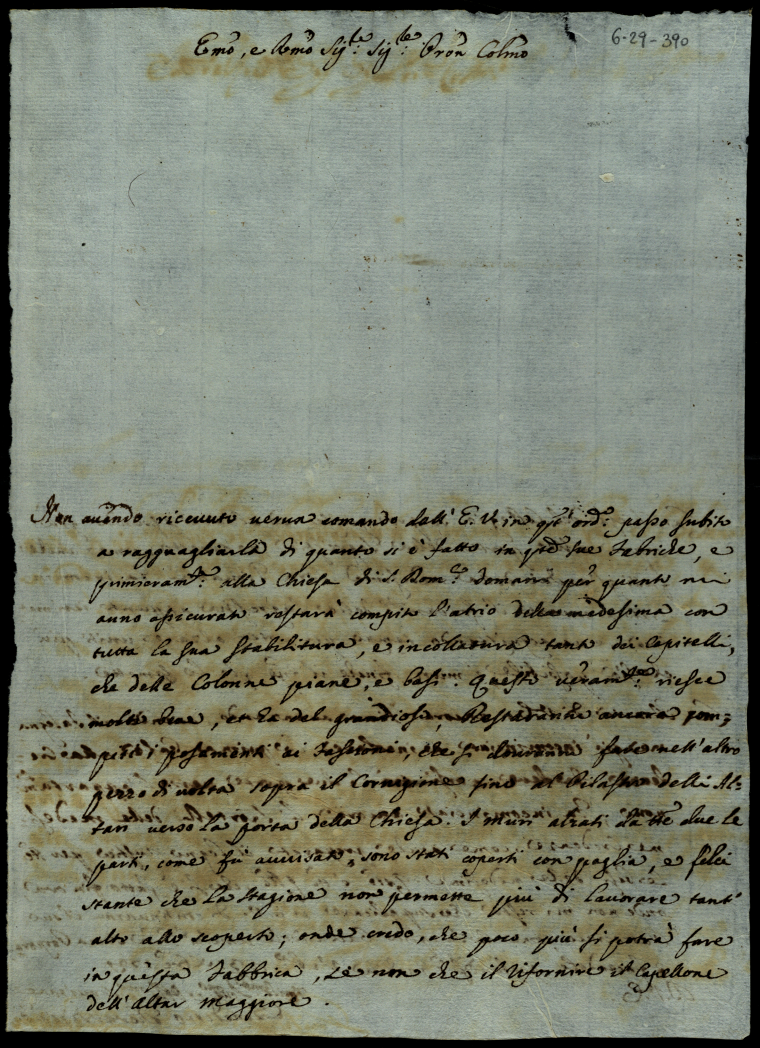 6-29-390
Emo, e Rmo Sig.re Sig.re Pron Colmo
Non avendo ricevuto verun comando dall' E. V. in qst' ord.o passo subito
a ragguagliarla di quanto si è fatto in qste sue Fabriche, e
primieram.te alla Chiesa di S. Rom.o domani per quanto mi
anno assicurato restarà compito l'atrio della medesima con
tutta la sua stabilitura, e incollatura tanto dei Capitelli,
che delle Colonne piane, e basi. Questo veram.te riesce
molto bene, et ha del grandioso, Restaranno ancora com=
piti i posamenti ai Festoni, che si dovranno fare nell'altro
pezzo di volta sopra il Cornigione fino al Pilastro delli Al=
tari verso la porta della Chiesa. I muri alzati da tte due le
parti, come fù avvisato, sono stati coperti con paglia, e felci
stante che la stagione non permette più di lavorare tant'
alto allo scoperto; onde credo, che poco più si potrà fare
in questa Fabbrica, se non che il rifornire il Capellone
dell'Altar maggiore.